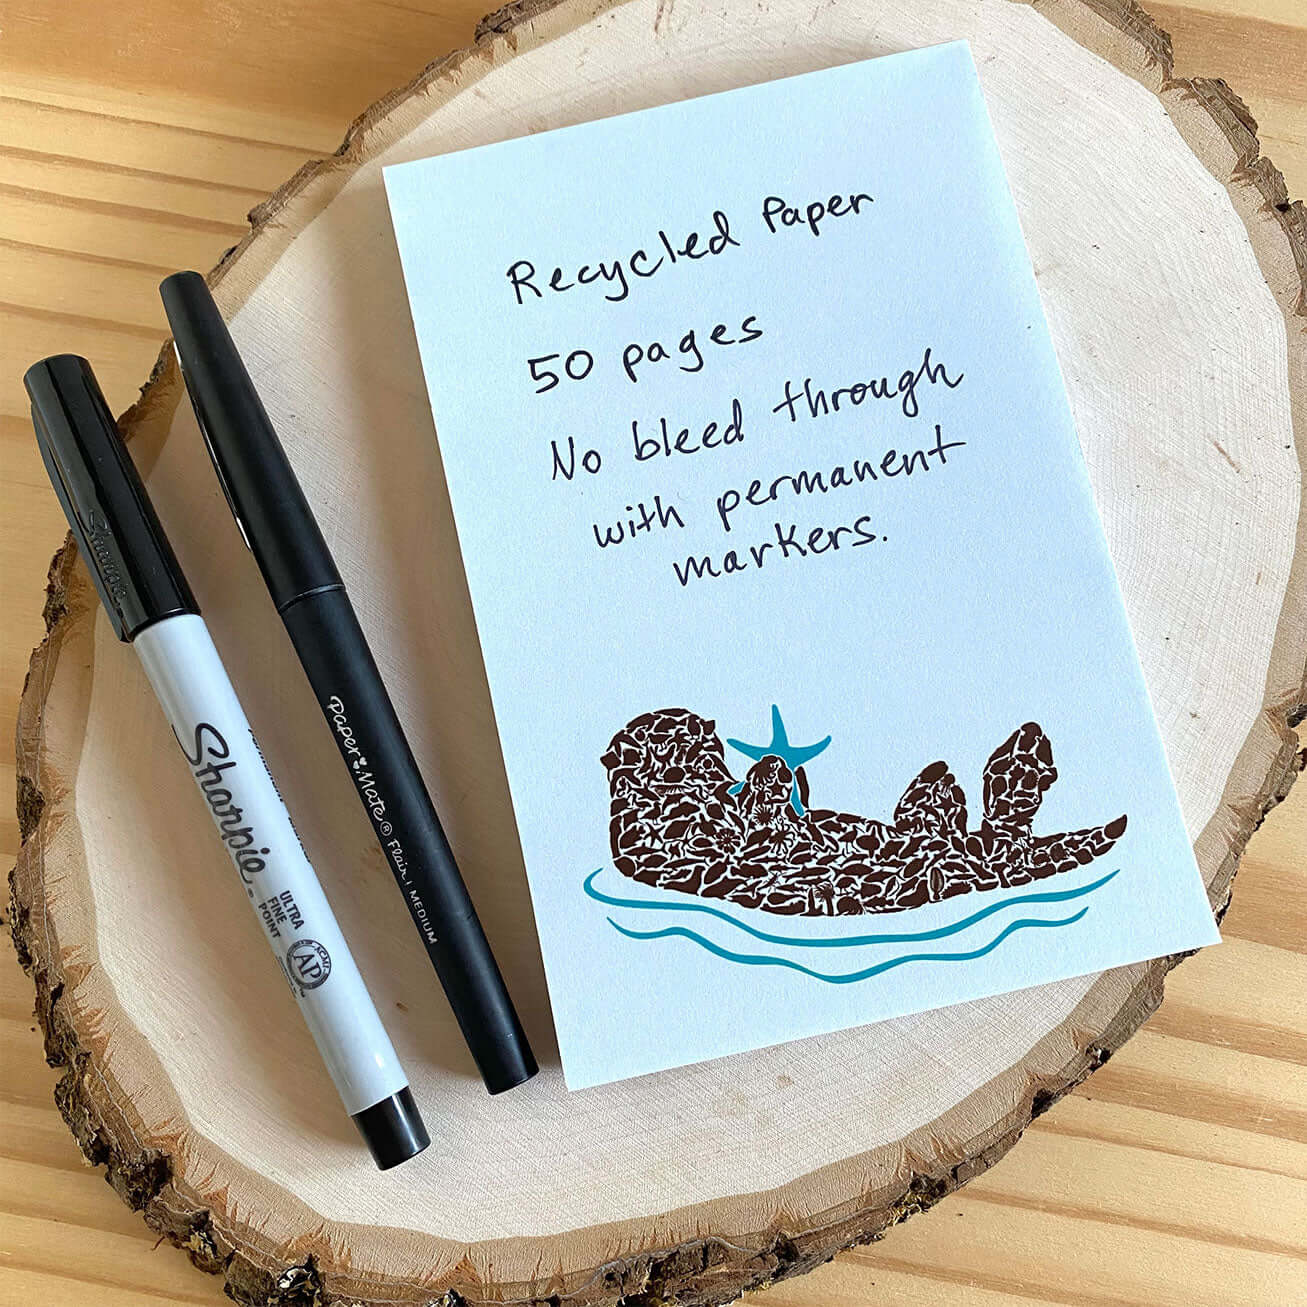 Recycled Paper
50 pages
No bleed through
with permanent
markers.
Sharpie
Sharpie.
ULTRA
FINE
POINT
AP
Paper Mate® Flair | MEDIUM